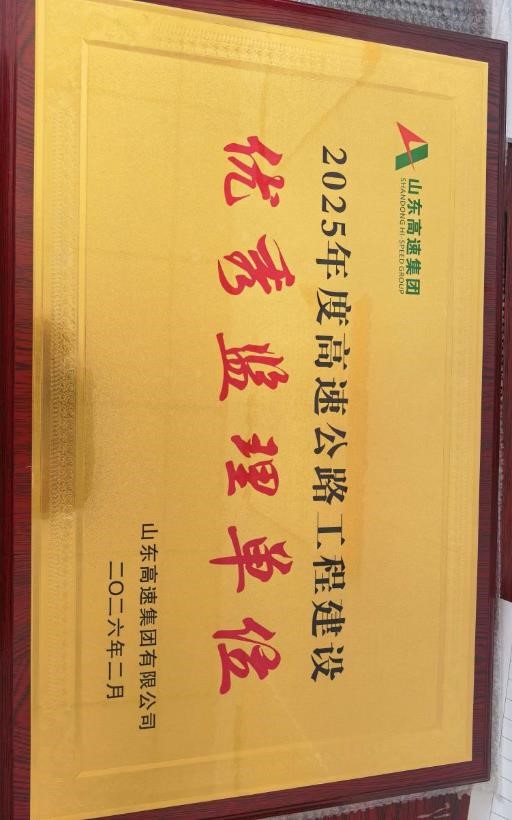 山东高速集团
SHANDONG HI-SPEED GROUP
2025年度高速公路工程建设
优秀监理单位
山东高速集团有限公司
二〇二六年二月